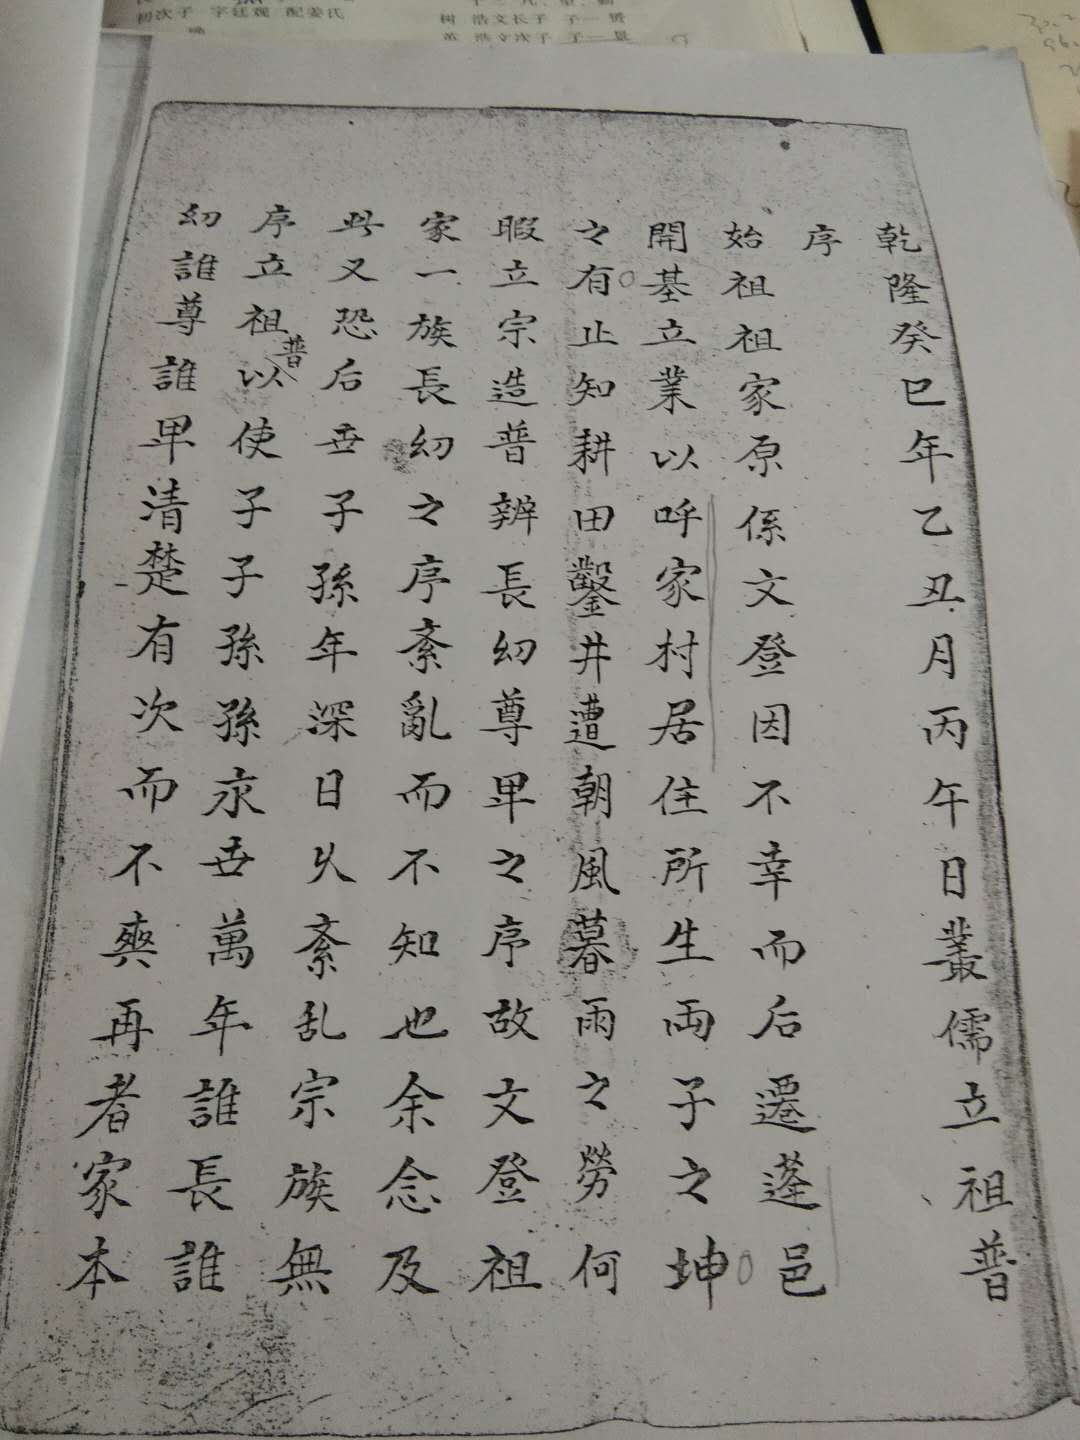 乾隆癸巳年乙丑月丙午日叢儒立祖普
序
始祖祖家原係文登因不幸而后遷蓬邑
開基立業以呼家村居住所生両子之坤
之有止知耕田鑿井遭朝風暮雨之勞何
暇立宗造普辨長幼尊卑之序故文登祖
家一族長幼之序紊亂而不知也余念及
此又恐后世子孫年深日久紊乱宗族無
序立祖普以使子子孫孫永世萬年誰長誰
幼誰尊誰卑清楚有次而不爽再者家本
初次子 字廷观 配姜氏
树 浩文长子 子一贤
英 浩文次子 子一景